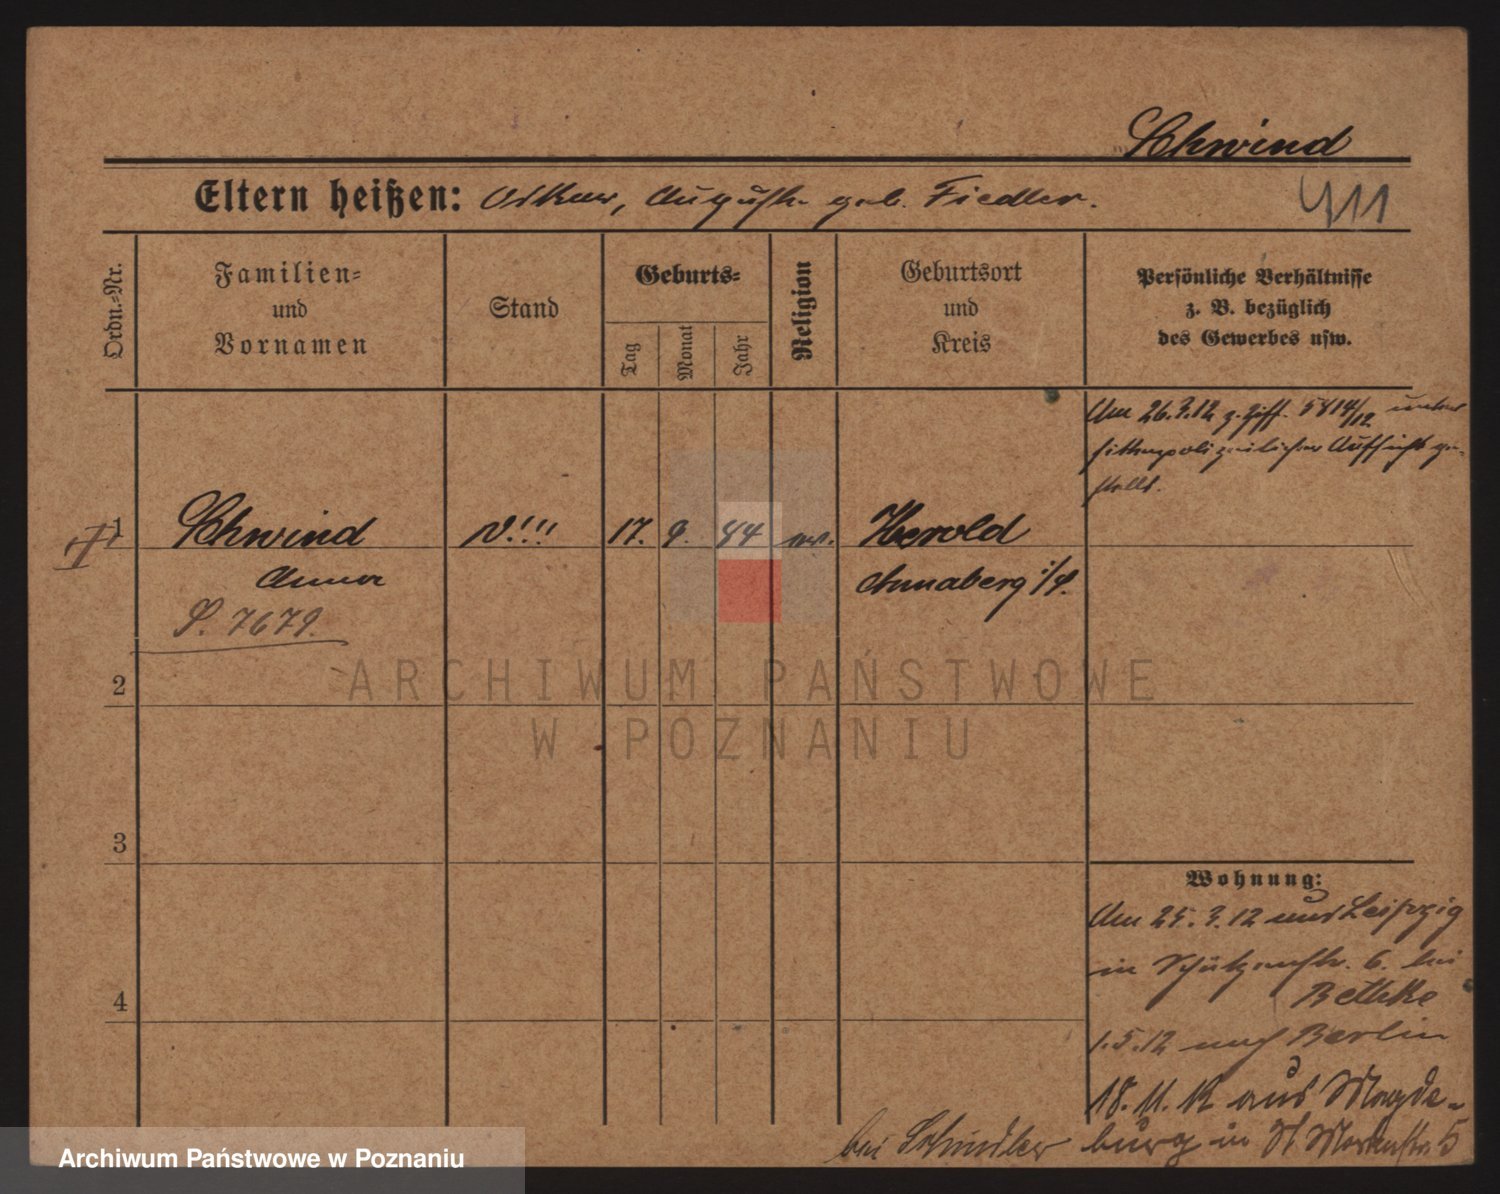 Schwind
Eltern heißen: Oskar, Auguste geb. Fiedler.
411
Ordn.=Nr.
Familien=
und
Vornamen
Stand
Geburts=
Tag
Monat
Jahr
Religion
Geburtsort
und
Kreis
Persönliche Verhältnisse
z. B. bezüglich
des Gewerbes usw.
Am 26.3.12 z. Ziff. 5814/12 unter
sittenpolizeilicher Aufsicht ge-
stellt.
1
Schwind
17. 9. 84 ev.
Herold
Anna
Annaberg i/S.
S. 7679.
2
ARCHIWUM PAŃSTWOWE
W POZNANIU
3
Wohnung:
Am 25.3.12 aus Leipzig
in Schützenstr. 6. bei
Bethke
1.5.12 nach Berlin
4
18.11.12 aus Magde-
bei Schindler burg in St Martinstr 5
Archiwum Państwowe w Poznaniu